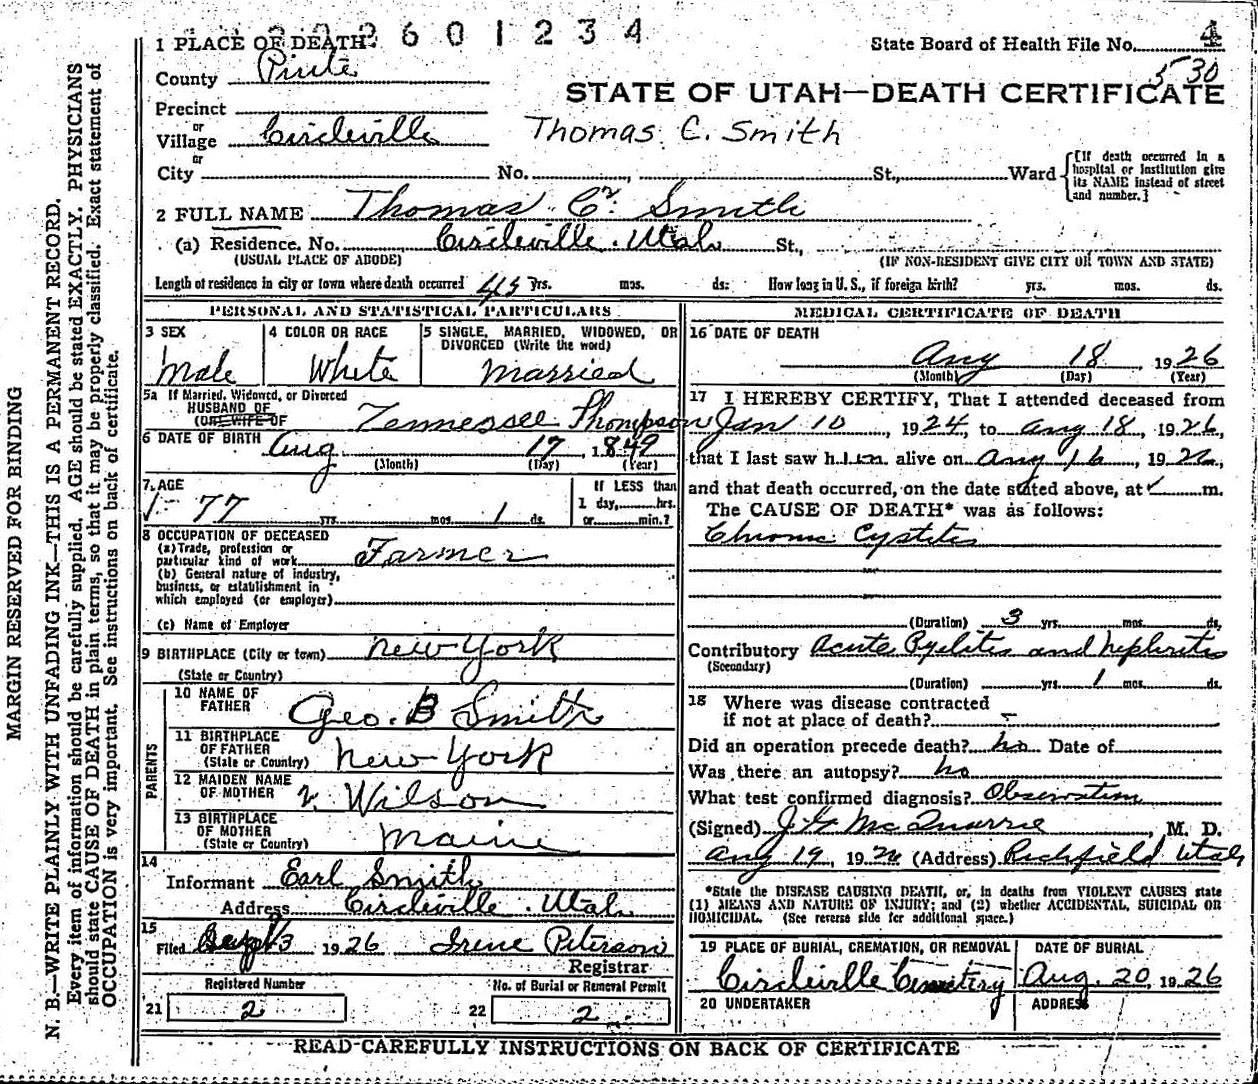 2601234
1 PLACE OF DEATH
State Board of Health File No. 4
County Piute
530
STATE OF UTAH—DEATH CERTIFICATE
Precinct
or
Village Circleville
Thomas C. Smith
or
City No. St., Ward
[If death occurred in a
hospital or institution give
its NAME instead of street
and number.]
2 FULL NAME Thomas C. Smith
(a) Residence. No. Circleville. Utah St.,
(USUAL PLACE OF ABODE) (IF NON-RESIDENT GIVE CITY OR TOWN AND STATE)
Length of residence in city or town where death occurred 45 yrs. mos. ds. How long in U. S., if foreign birth? yrs. mos. ds.
PERSONAL AND STATISTICAL PARTICULARS
3 SEX
Male
4 COLOR OR RACE
White
5 SINGLE, MARRIED, WIDOWED, OR
DIVORCED (Write the word)
Married
5a If Married, Widowed, or Divorced
HUSBAND OF
(OR WIFE OF
Tennessee Thompson
6 DATE OF BIRTH Aug 17, 1849
(Month) (Day) (Year)
7. AGE
77 yrs. mos. 1 ds.
If LESS than
1 day, hrs.
or min.?
8 OCCUPATION OF DECEASED
(a) Trade, profession or
particular kind of work Farmer
(b) General nature of industry,
business, or establishment in
which employed (or employer)
(c) Name of Employer
9 BIRTHPLACE (City or town) New York
(State or Country)
PARENTS
10 NAME OF
FATHER
Geo. B Smith
11 BIRTHPLACE
OF FATHER
(State or Country) New York
12 MAIDEN NAME
OF MOTHER
Wilson
13 BIRTHPLACE
OF MOTHER
(State or Country) Maine
14
Informant Earl Smith
Address Circleville. Utah
15
Filed Sept 3 1926 Irene Peterson
Registrar
Registered Number
21 2
No. of Burial or Removal Permit
22 2
MEDICAL CERTIFICATE OF DEATH
16 DATE OF DEATH
Aug 18 1926
(Month) (Day) (Year)
17 I HEREBY CERTIFY, That I attended deceased from
Jan 10, 1924, to Aug 18, 1926,
that I last saw him alive on Aug 16, 1926,
and that death occurred, on the date stated above, at m.
The CAUSE OF DEATH* was as follows:
Chronic Cystitis
(Duration) 3 yrs. mos. ds.
Contributory Acute Pyelitis and Nephritis
(Secondary)
(Duration) yrs. 1 mos. ds.
18 Where was disease contracted
if not at place of death? -
Did an operation precede death? no Date of
Was there an autopsy? no
What test confirmed diagnosis? Observation
(Signed) J G McQuarrie, M. D.
Aug 19, 1926 (Address) Richfield Utah
*State the DISEASE CAUSING DEATH, or, in deaths from VIOLENT CAUSES state
(1) MEANS AND NATURE OF INJURY; and (2) whether ACCIDENTAL, SUICIDAL OR
HOMICIDAL. (See reverse side for additional space.)
19 PLACE OF BURIAL, CREMATION, OR REMOVAL
Circleville Cemetery
DATE OF BURIAL
Aug. 20, 1926
20 UNDERTAKER
ADDRESS
READ CAREFULLY INSTRUCTIONS ON BACK OF CERTIFICATE
MARGIN RESERVED FOR BINDING
N. B.—WRITE PLAINLY WITH UNFADING INK—THIS IS A PERMANENT RECORD.
Every item of information should be carefully supplied. AGE should be stated EXACTLY. PHYSICIANS
should state CAUSE OF DEATH in plain terms, so that it may be properly classified. Exact statement of
OCCUPATION is very important. See instructions on back of certificate.